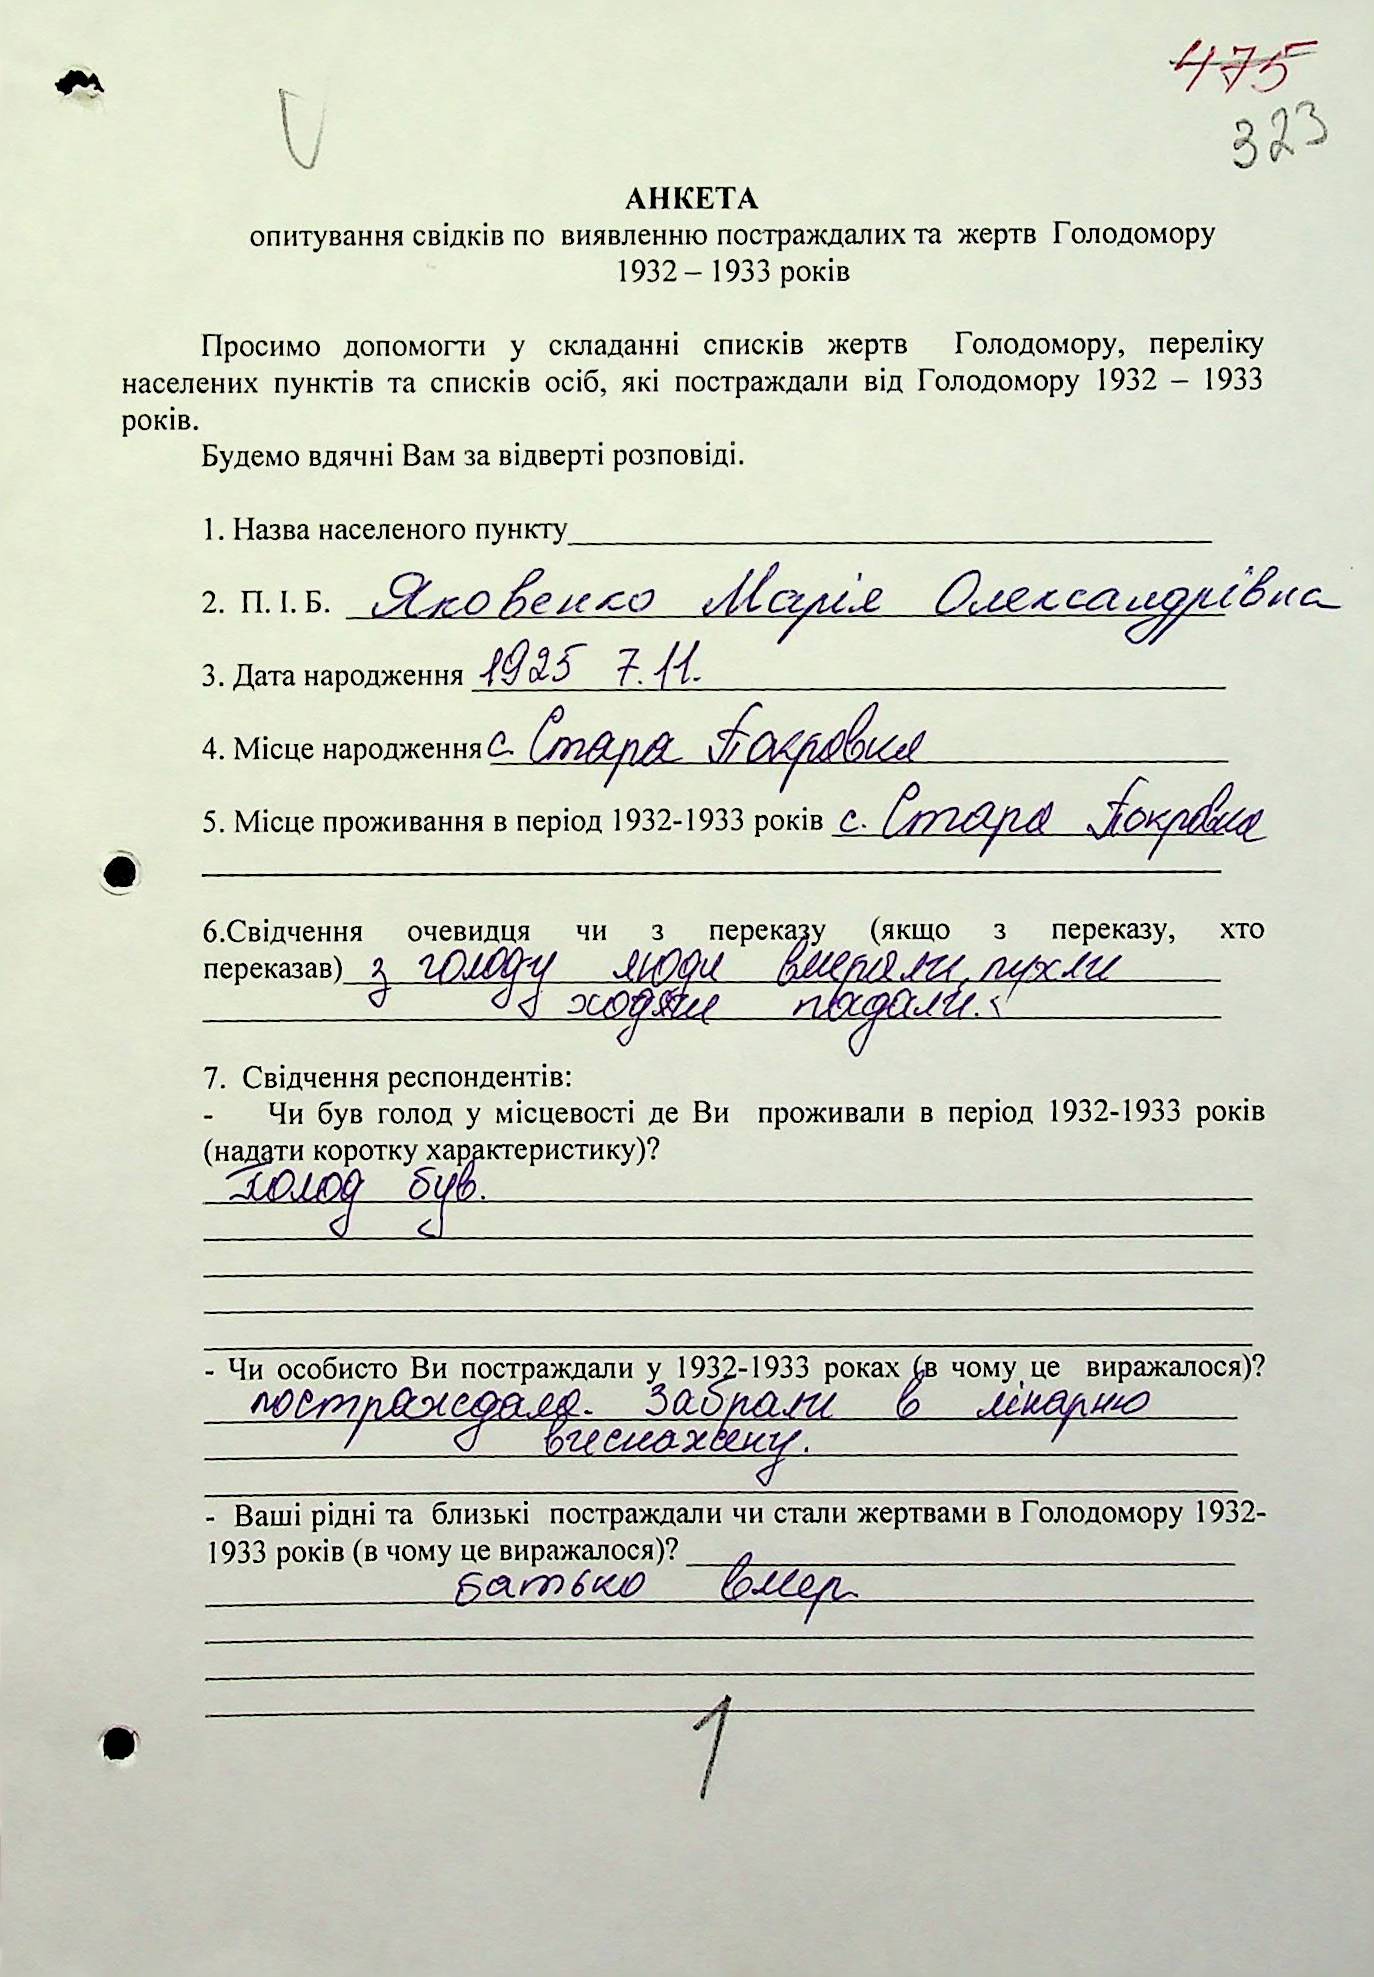 475
323
АНКЕТА
опитування свідків по виявленню постраждалих та жертв Голодомору
1932 – 1933 років
Просимо допомогти у складанні списків жертв Голодомору, переліку
населених пунктів та списків осіб, які постраждали від Голодомору 1932 – 1933
років.
Будемо вдячні Вам за відверті розповіді.
1. Назва населеного пункту
2. П. І. Б. Яковенко Марія Олександрівна
3. Дата народження 1925 7.11.
4. Місце народження с. Стара Покровка
5. Місце проживання в період 1932-1933 років с. Стара Покровка
6.Свідчення очевидця чи з переказу (якщо з переказу, хто
переказав) з голоду люди вмерали, пухли
ходячи падали.
7. Свідчення респондентів:
- Чи був голод у місцевості де Ви проживали в період 1932-1933 років
(надати коротку характеристику)?
Голод був.
- Чи особисто Ви постраждали у 1932-1933 роках (в чому це виражалося)?
постраждала. Забрали в лікарню
виснажену.
- Ваші рідні та близькі постраждали чи стали жертвами в Голодомору 1932-
1933 років (в чому це виражалося)?
батько вмер
1